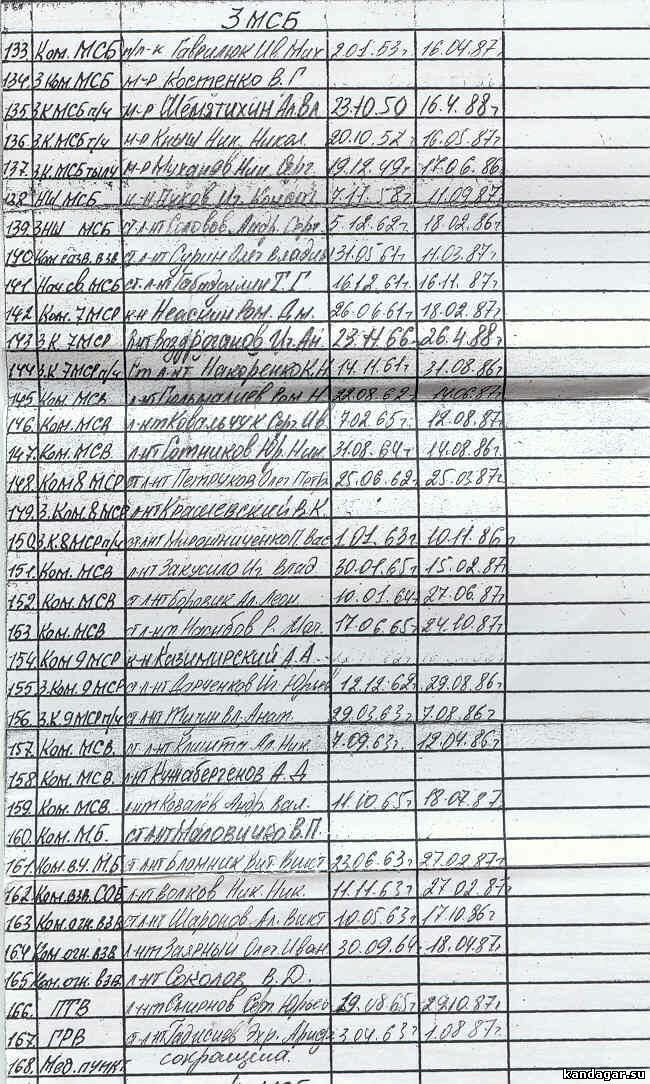 3 МСБ
133. Ком. МСБ п/п-к Гаврилюк Ив. Мих 2.01.53г 16.04.87г
134. З Ком. МСБ м-р Костенко В.Г
135. З К МСБ п/ч м-р Шемятихин Ал.Вл 23.10.50 16.4.88г
136. З К. МСБ т/ч м-р Кныш Ник. Никол. 20.10.52г 16.05.87г
137. З.К. МСБ тылу м-р Муханов Ник. Серг. 19.12.49г 17.06.86
138. НШ МСБ к-н Пухов Иг. 7.11.58г 11.09.87
139. ЗНШ МСБ ст л-нт Соловов Андр. Серг. 5.12.62г 18.02.86г
140. Ком разв. взв ст л-нт Сурин Олег Влади 31.05.61г 11.03.87г
141. Нач. св. МСБ ст. л-нт Т.Г 16.12.61г 16.11.87г
142. Ком. 7 МСР к-н 26.06.61г 18.02.87г
143. З.К. 7 МСР Иг. Ан. 23.11.66 26.4.88г
144. З.К. 7 МСР п/ч Ст л-нт Накоренко К.Н 14.11.61г 31.08.86г
145. Ком. МСВ л-нт Ром. Н 22.08.62г
146. Ком. МСВ л-нт Ковальчук Серг Ив. 7.02.65г. 12.08.87г
147. Ком. МСВ л-нт Сотников Юр. Ник 31.08.64г 14.08.86г
148. Ком 8 МСР ст л-нт Петочков Олег Петр 25.06.62г 25.03.87г
149. З. Ком. 8 МСР л-нт Крашевский В.К.
150. З.К. 8 МСР п/ч ст л-нт Мирошниченко П. Вас 1.01.63г 10.11.86г
151. Ком. МСВ л-нт Закусило Иг. Влад 30.01.65г 15.02.87г
152. Ком. МСВ ст л-нт Боровик Ал. Леон. 10.01.64г 27.06.87г
153. Ком. МСВ ст л-нт Р. 17.06.65г 24.10.87г
154. Ком 9 МСР к-н Казимирский А.А.
155. З. Ком. 9 МСР ст л-нт Иг. Юрьев 12.12.62г 29.08.86г
156. З.К. 9 МСР п/ч ст л-нт Вл. Анат. 29.03.63г 7.08.86г
157. Ком. МСВ. ст л-нт Ал. Ник. 7.09.63г. 12.04.86г
158. Ком. МСВ. л-нт Кужабергенов А.Д
159. Ком. МСВ. л-нт Ковалёв Андр. Вал. 11.10.65г 18.07.87
160. Ком. МБ. ст л-нт Маловичко В.П.
161. Ком. в.ч. МБ ст л-нт Вит. Викт 23.06.63г 27.02.87г
162. Ком. взв. СОБ л-нт Волков Ник. Ник. 11.11.63г 27.02.87г
163. Ком. огн. взв. ст л-нт Шаронов Ал. Викт 10.05.63г 17.10.86г
164. Ком. огн. взв. л-нт Заярный Олег Иван 30.09.64г 18.04.87г
165. Ком. огн. взв. л-нт Соколов В.Д.
166. ПТВ л-нт Смирнов Серг Юрьев 19.08.65г 29.10.87г
167. ГРВ ст л-нт 3.04.63г 1.08.87г
168. Мед. пункт сокращена.
kandagar.su